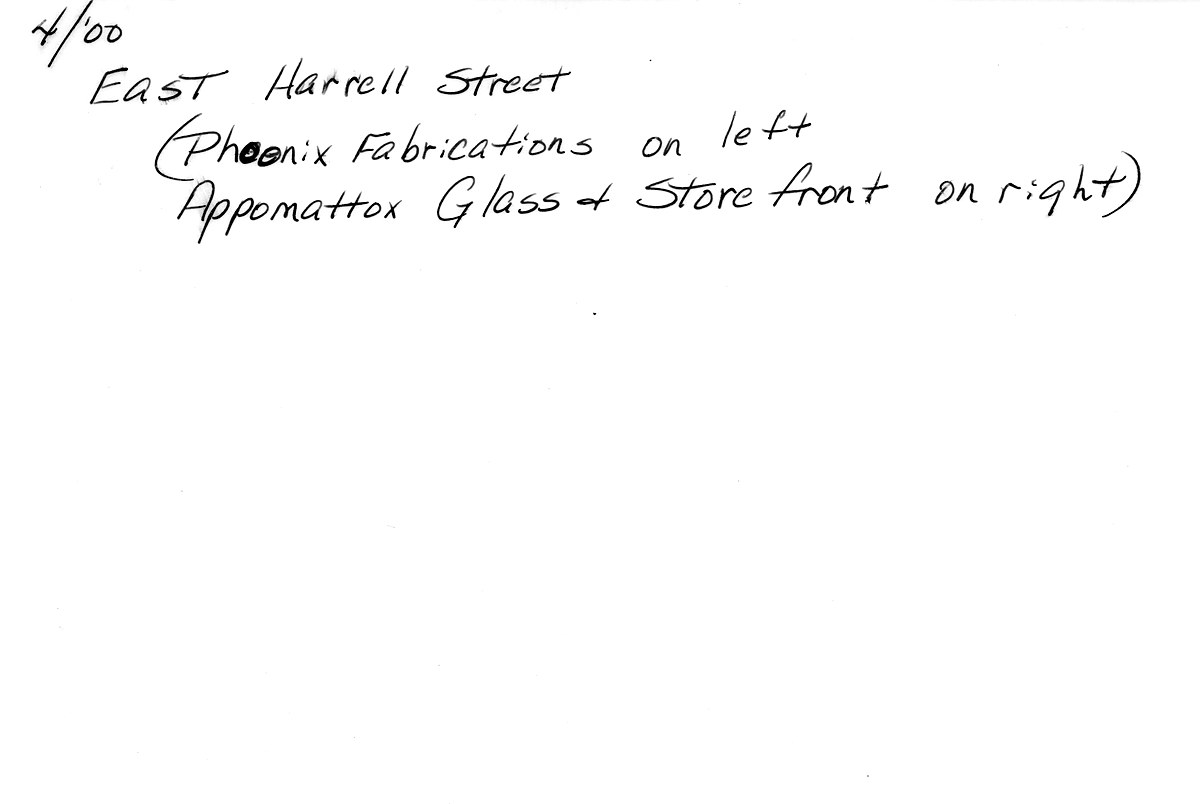 4/'00
East Harrell Street
(Phoenix Fabrications on left
Appomattox Glass & Store front on right)